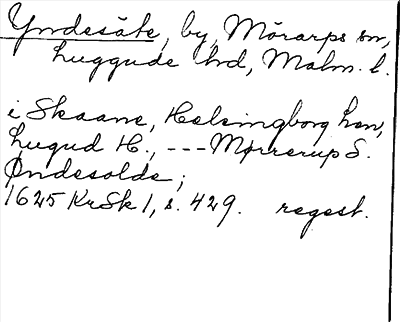 Yndesäte, by, Mörarps sn,
Luggude hd, Malm. l.
i Skaane, Helsingborg Len,
Lugud H., --- Mørrerup S.
Øndesolde;
1625 KrSk 1, s. 429. regest.